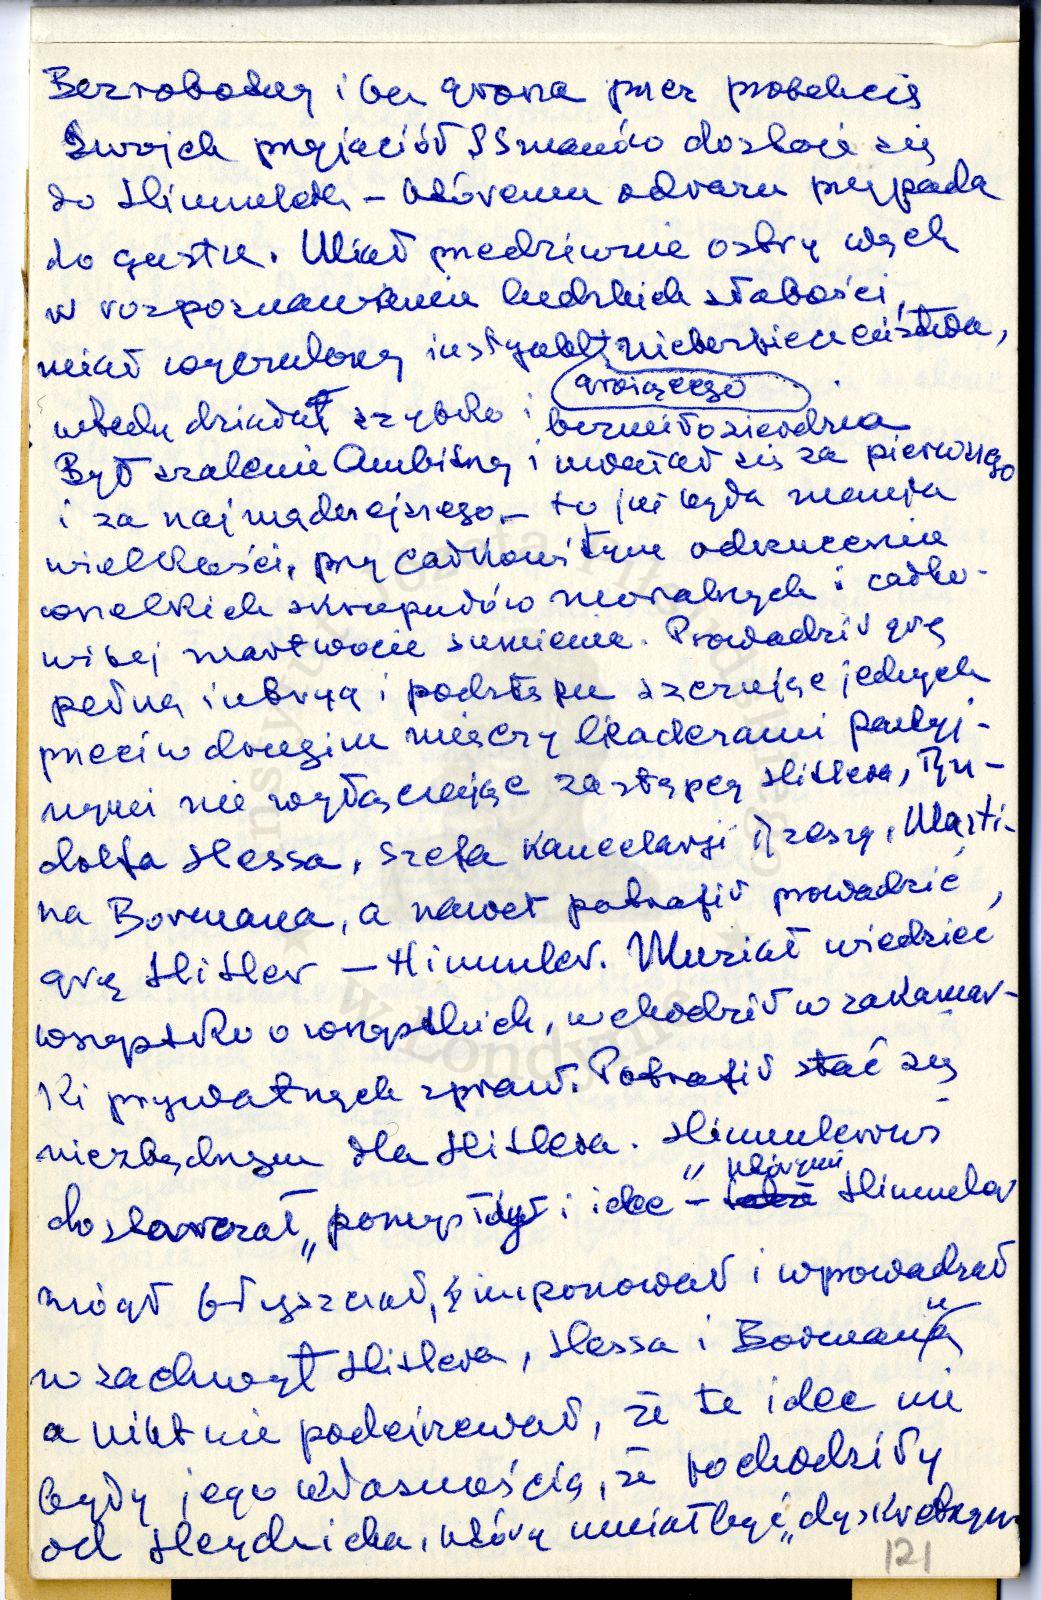 Bezrobotny i bez grosza przez protekcję
swoich przyjaciół SSmanów dostaje się
do Himmlera – któremu odrazu przypada
do gustu. Miał przedziwnie ostry węch
w rozpoznawaniu ludzkich słabości,
miał wyczulony instynkt niebezpieczeństwa,
grożącego
wtedy działał szybko i bezmiłosierdnia
Był szalenie Ambitny i uważał się za pierwszego
i za najmądrzejszego – to już była manja
wielkości, przy całkowitym odrzuceniu
wszelkich skrupułów moralnych i całko-
witej martwocie sumienia. Prowadził grę
pełną intryg i podstępu szczując jednych
przeciw drugim między leaderami partyj-
nymi nie wyłączając zastępcy Hitlera, Ru-
dolfa Hessa, szefa Kancelarji Rzeszy, Marti-
na Bormana, a nawet potrafił prowadzić
grę Hitler – Himmler. Musiał wiedzieć
wszystko o wszystkich, wchodził w zakamar-
ki prywatnych spraw. Potrafił stać się
niezbędnym dla Hitlera. Himmlerowi
dostarczał „pomysły i idee" – którymi Himmler
mógł błyszczeć, imponować i wprowadzać
w zachwyt Hitlera, Hessa i Bormana
a nikt nie podejrzewał, że te idee nie
były jego własnością, że pochodziły
od Heydricha, który umiał być „dyskretnym
121
Instytut Józefa Piłsudskiego
w Londynie